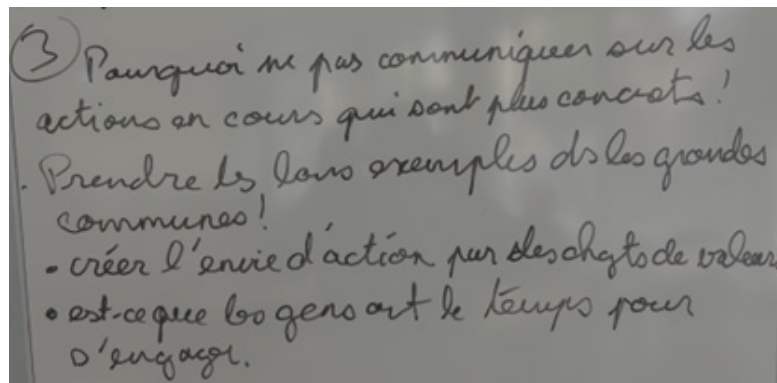 ③ Pourquoi ne pas communiquer sur les
actions en cours qui sont plus concrets !
. Prendre les bons exemples ds les grandes
communes !
• créer l'envie d'action par des chgts de valeur
• est-ce que les gens ont le temps pour
s'engager.